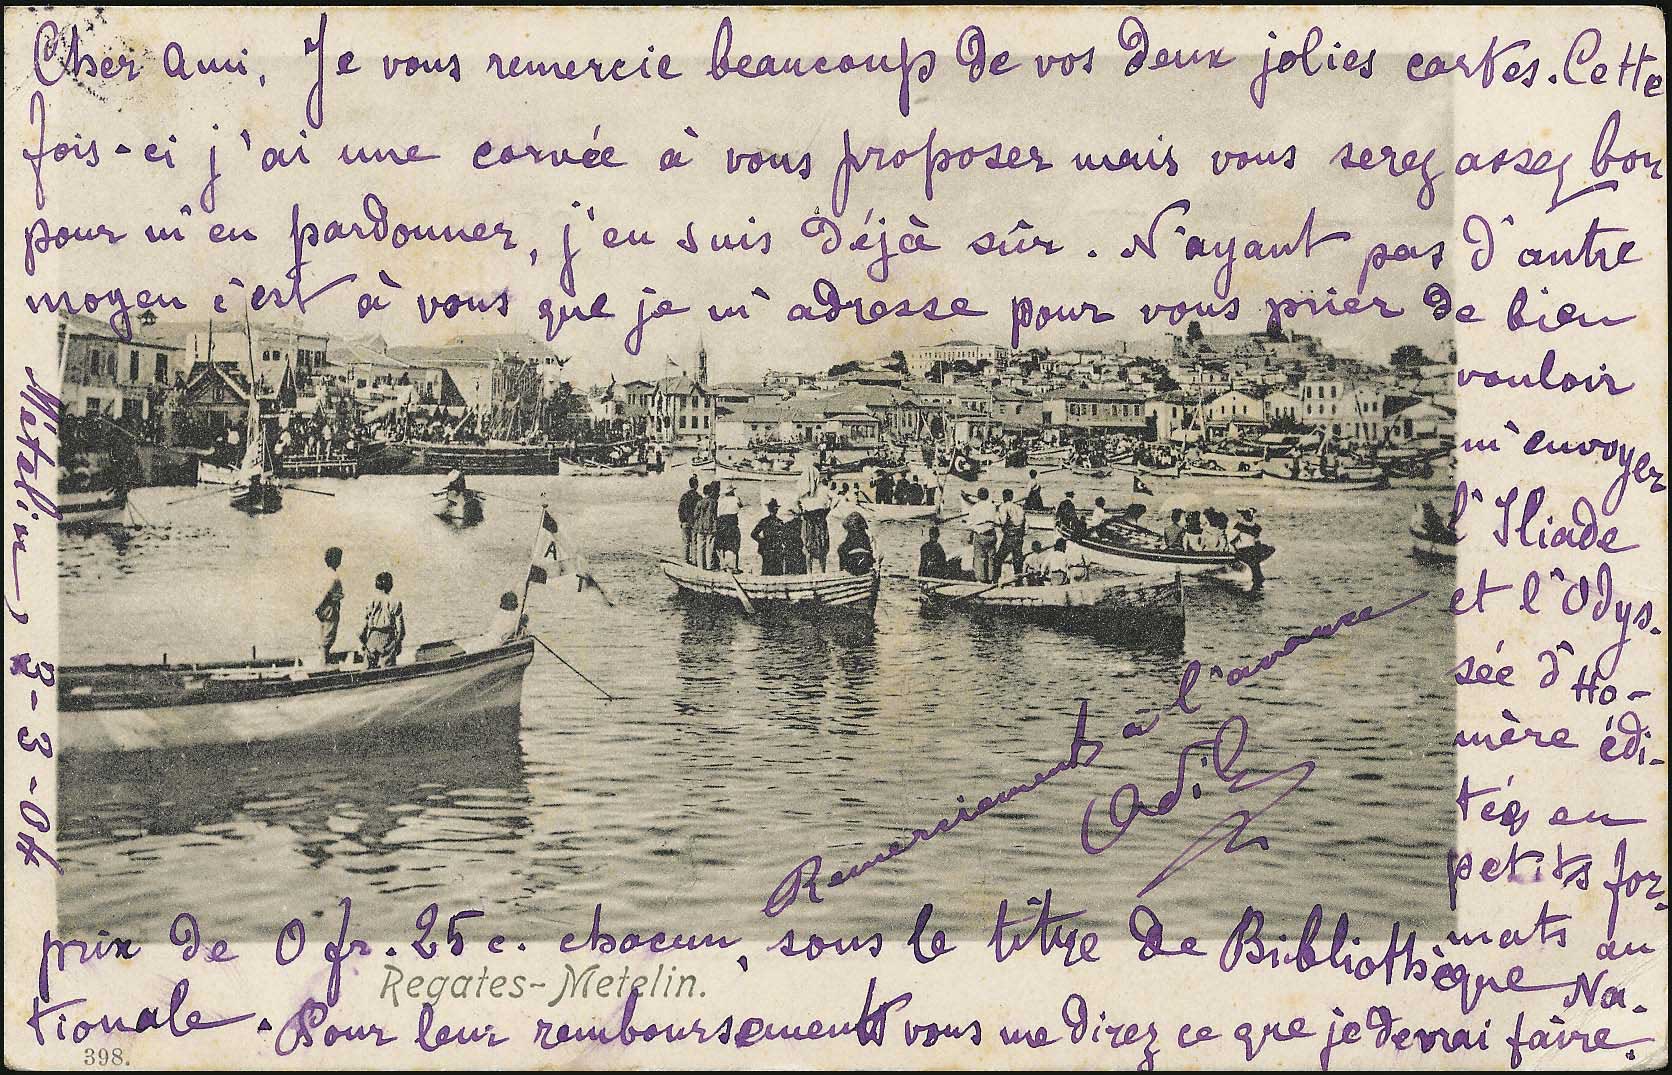 Cher Ami, Je vous remercie beaucoup de vos deux jolies cartes. Cette
fois-ci j'ai une corvée à vous proposer mais vous serez assez bon
pour m'en pardonner, j'en suis déjà sûr. N'ayant pas d'autre
moyen c'est à vous que je m'adresse pour vous prier de bien
vouloir
m'envoyer
l'Iliade
et l'Odys.
sée d'Ho-
mère édi-
tés en
petits for-
mats au
prix de 0 fr. 25 c. chacun, sous le titre de Bibliothèque Na-
tionale. Pour leur remboursement vous me direz ce que je devrai faire.
Remerciements à l'avance
Adil
Metelin, 3-3-04
A
Regates-Metelin.
398.